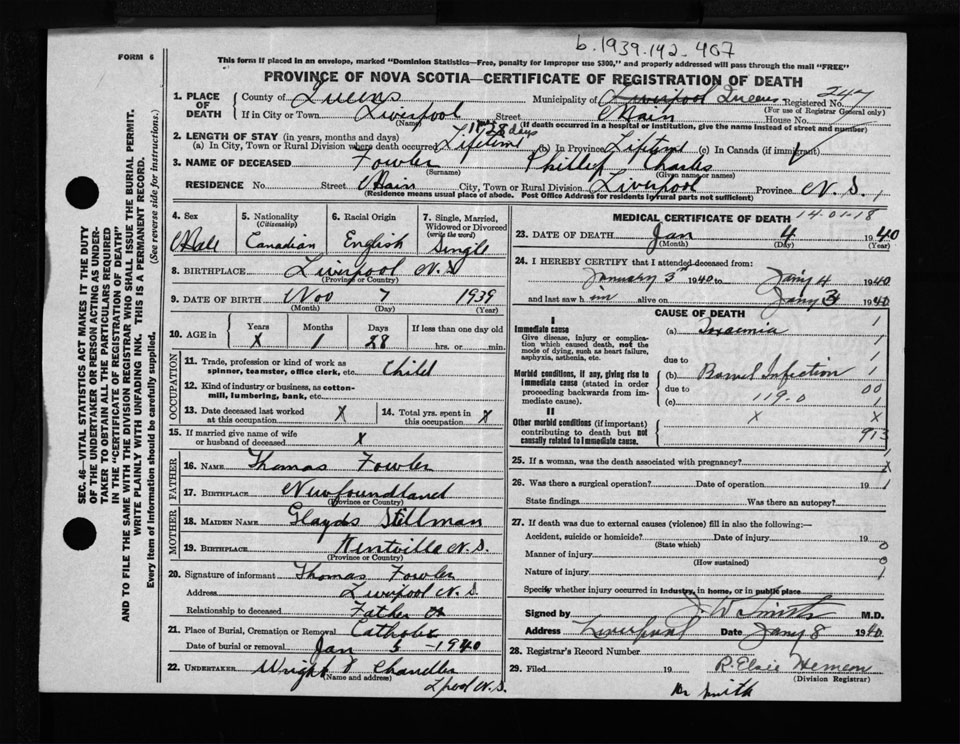 b.1939.142-407
FORM 6
This form if placed in an envelope, marked "Dominion Statistics—Free, penalty for improper use $300," and properly addressed will pass through the mail "FREE"
PROVINCE OF NOVA SCOTIA—CERTIFICATE OF REGISTRATION OF DEATH
1. PLACE OF DEATH
County of Queens Municipality of Liverpool Queens Registered No. 247
(For use of Registrar General only)
If in City or Town Liverpool Street Main House No.
(Name) (If death occurred in a hospital or institution, give the name instead of street and number)
2. LENGTH OF STAY (in years, months and days) 1 28 days
(a) In City, Town or Rural Division where death occurred Lifetime (b) In Province Lifetime (c) In Canada (if immigrant)
3. NAME OF DECEASED Fowler Phillip Charles
(Surname) (Given name or names)
RESIDENCE No. Street Main City, Town or Rural Division Liverpool Province N.S.
(Residence means usual place of abode. Post Office Address for residents in rural parts not sufficient)
4. Sex
Male
5. Nationality
(Citizenship)
Canadian
6. Racial Origin
English
7. Single, Married, Widowed or Divorced
(write the word)
Single
8. BIRTHPLACE Liverpool N.S
(Province or Country)
9. DATE OF BIRTH Nov 7 1939
(Month) (Day) (Year)
10. AGE in Years Months Days If less than one day old
X 1 28 hrs. or min.
OCCUPATION
11. Trade, profession or kind of work as
spinner, teamster, office clerk, etc. Child
12. Kind of industry or business, as cotton-
mill, lumbering, bank, etc.
13. Date deceased last worked
at this occupation X
14. Total yrs. spent in
this occupation X
15. If married give name of wife
or husband of deceased X
FATHER
16. NAME Thomas Fowler
17. BIRTHPLACE Newfoundland
(Province or Country)
MOTHER
18. MAIDEN NAME Glayds Stillman
19. BIRTHPLACE Kentville N.S.
(Province or Country)
20. Signature of informant Thomas Fowler
Address Liverpool N.S.
Relationship to deceased Father
21. Place of Burial, Cremation or Removal Catholic
Date of burial or removal Jan 5 - 1940
22. UNDERTAKER Wright & Chandler
(Name and address)
Lpool N.S.
MEDICAL CERTIFICATE OF DEATH 14-01-18
23. DATE OF DEATH Jan 4 1940
(Month) (Day) (Year)
24. I HEREBY CERTIFY that I attended deceased from:
January 3rd 1940 to Jany 4 1940
and last saw him alive on Jany 3 1940
CAUSE OF DEATH
I
Immediate cause
Give disease, injury or complication which caused death, not the mode of dying, such as heart failure, asphyxia, asthenia, etc.
(a) Toxaemia 1
1
due to 1
Morbid conditions, if any, giving rise to immediate cause (stated in order proceeding backwards from immediate cause).
(b) Bowel Infection 1
due to 00
(c) 119.0 1
II
Other morbid conditions (if important) contributing to death but not causally related to immediate cause.
X X
913
25. If a woman, was the death associated with pregnancy?
26. Was there a surgical operation? Date of operation 19
State findings Was there an autopsy?
27. If death was due to external causes (violence) fill in also the following:—
Accident, suicide or homicide? Date of injury 19
(State which)
Manner of injury
(How sustained)
Nature of injury
Specify whether injury occurred in industry, in home, or in public place
Signed by J. W. Smith M.D.
Address Liverpool Date Jany 8 1940
28. Registrar's Record Number
29. Filed 19 R. Elsie Hemeon
(Division Registrar)
Dr Smith
SEC. 46—VITAL STATISTICS ACT MAKES IT THE DUTY
OF THE UNDERTAKER OR PERSON ACTING AS UNDER-
TAKER TO OBTAIN ALL THE PARTICULARS REQUIRED
IN THE "CERTIFICATE OF REGISTRATION OF DEATH"
AND TO FILE THE SAME WITH THE DIVISION REGISTRAR WHO SHALL ISSUE THE BURIAL PERMIT.
WRITE PLAINLY WITH UNFADING INK. THIS IS A PERMANENT RECORD.
Every item of information should be carefully supplied. (See reverse side for instructions.)